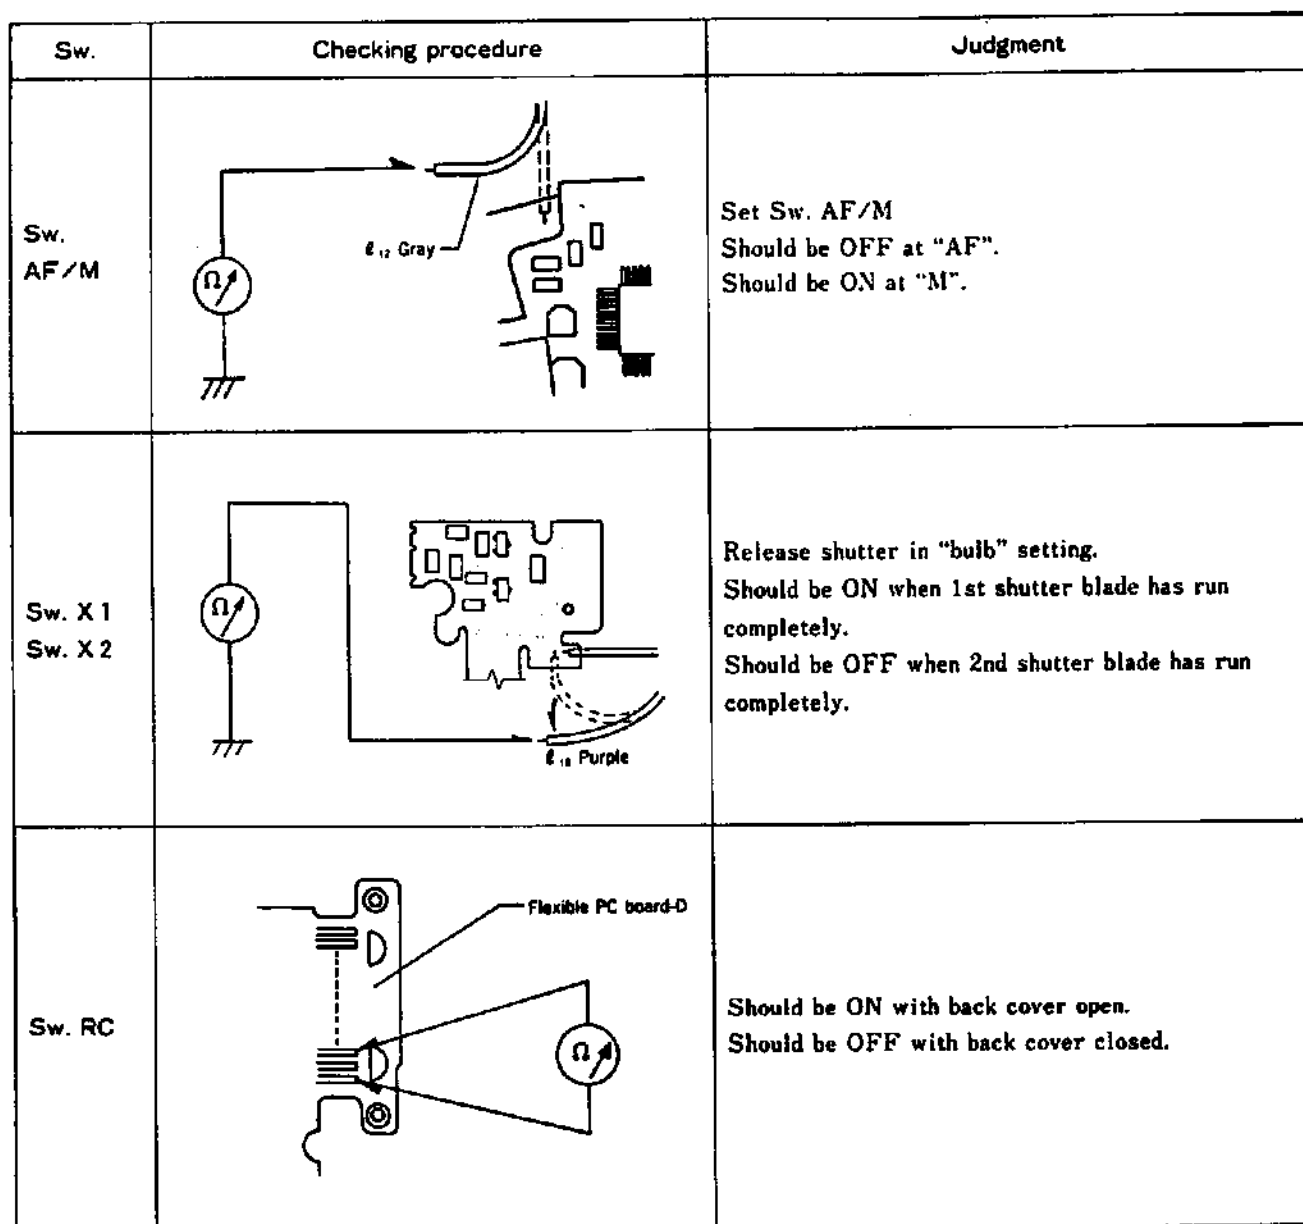 Sw.
Checking procedure
Judgment
Sw.
AF/M
Ω
ℓ₁₂ Gray
Set Sw. AF/M
Should be OFF at "AF".
Should be ON at "M".
Sw. X1
Sw. X2
Ω
ℓ₁₈ Purple
Release shutter in "bulb" setting.
Should be ON when 1st shutter blade has run
completely.
Should be OFF when 2nd shutter blade has run
completely.
Sw. RC
Flexible PC board-D
Ω
Should be ON with back cover open.
Should be OFF with back cover closed.